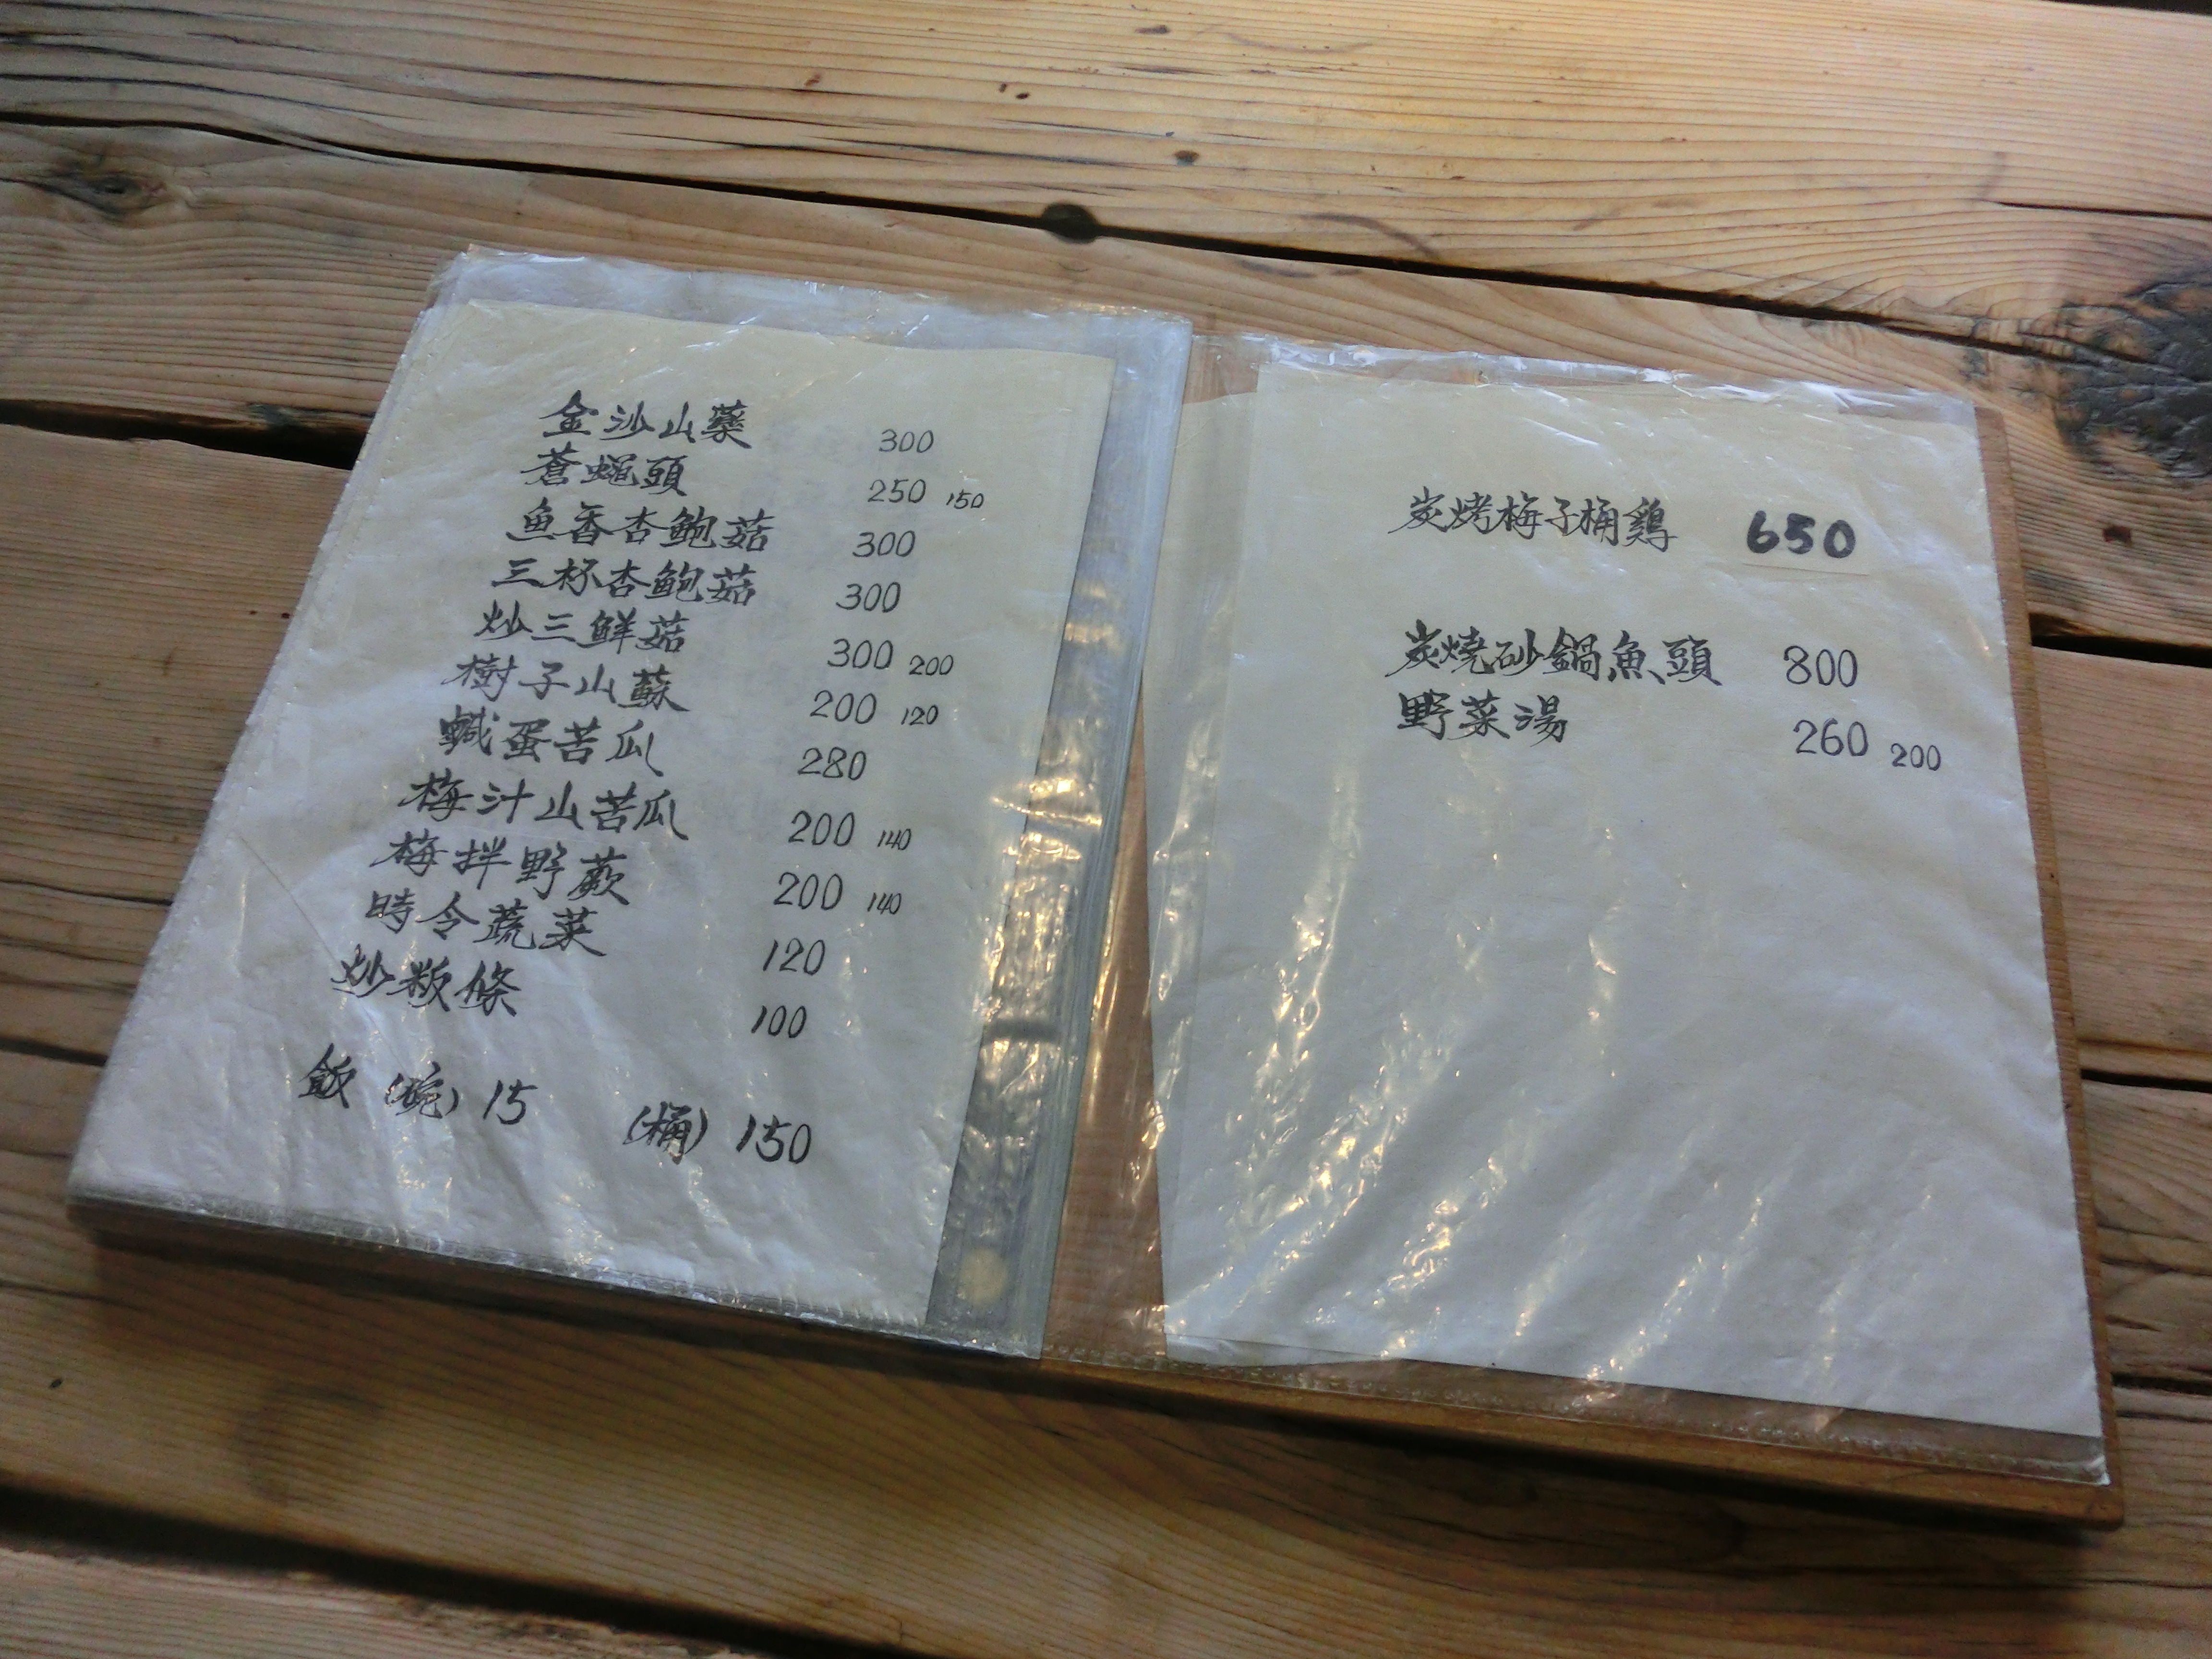 金沙山藥 300
蒼蠅頭 250 150
魚香杏鮑菇 300
三杯杏鮑菇 300
炒三鮮菇 300 200
樹子山蘇 200 120
鹹蛋苦瓜 280
梅汁山苦瓜 200 140
梅拌野蕨 200 140
時令蔬菜 120
炒粄條 100
飯 (碗) 15 (桶) 150
炭烤梅子桶鷄 650
炭燒砂鍋魚頭 800
野菜湯 260 200